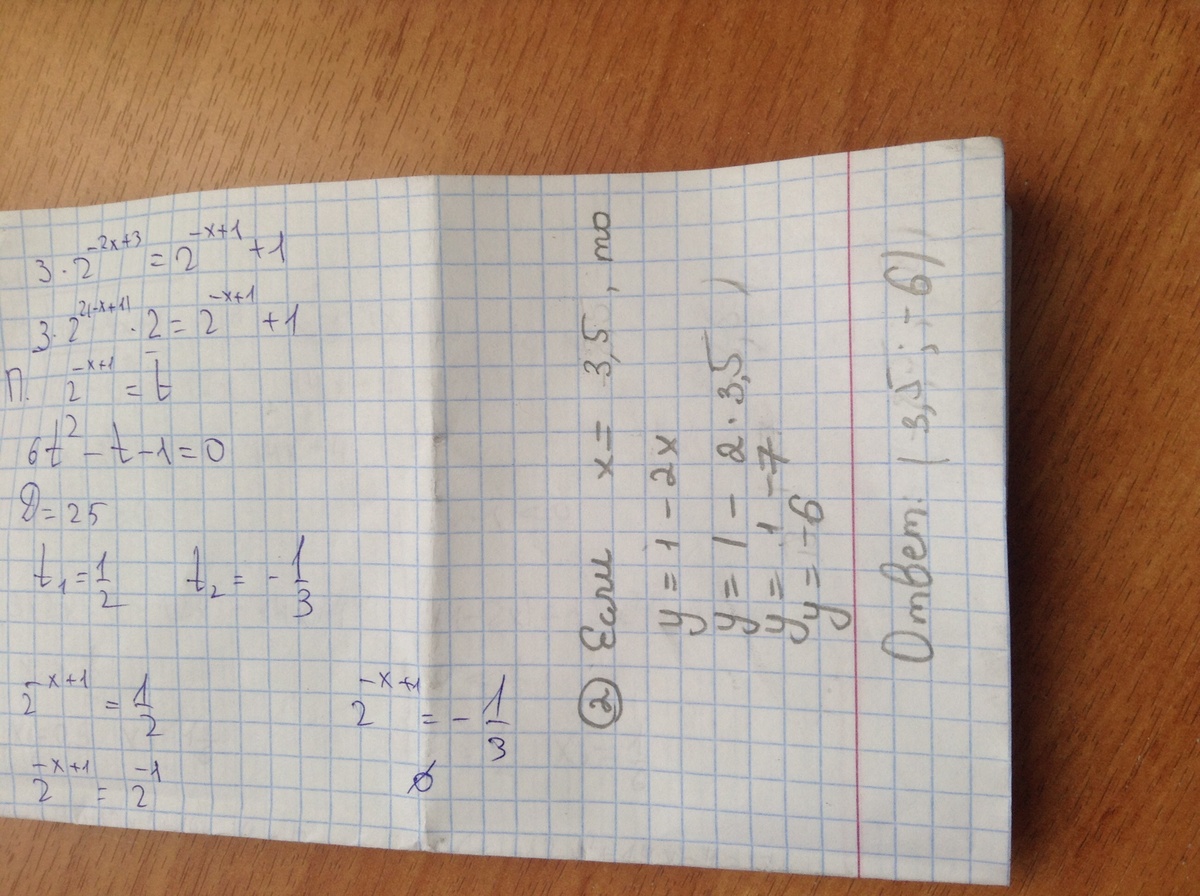 3·2^{-2x+3} = 2^{-x+1} + 1
3·2^{2(-x+1)}·2 = 2^{-x+1} + 1
П. 2^{-x+1} = t
6t² - t - 1 = 0
D = 25
t₁ = 1/2 t₂ = -1/3
2^{-x+1} = 1/2 2^{-x+1} = -1/3
2^{-x+1} = 2^{-1} ∅
② Если x = 3,5, то
y = 1 - 2x
y = 1 - 2·3,5
y = 1 - 7
y = -6
Ответ: (3,5; -6)